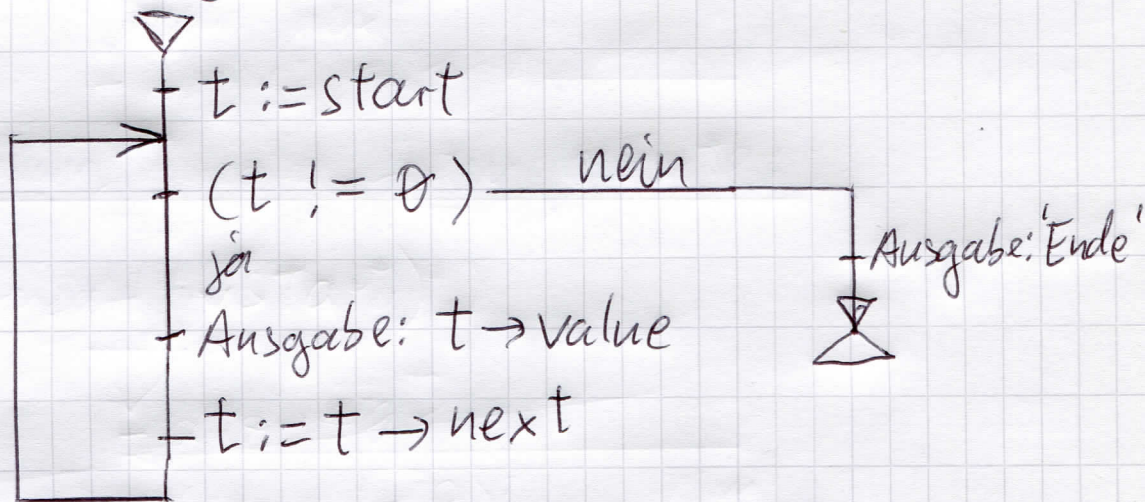 t := start
(t != 0) nein
ja
Ausgabe: 'Ende'
Ausgabe: t → value
t := t → next